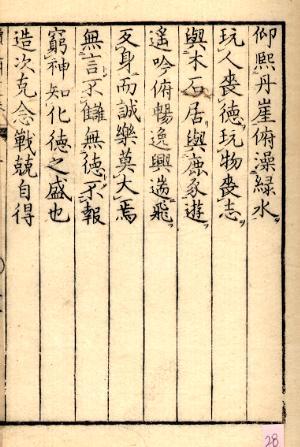 仰熙丹崖俯澡緑水
玩人喪德玩物喪志
與木石居與鹿豕遊
遥吟俯暢逸興遄飛
反身而誠樂莫大焉
無言不讎無德不報
窮神知化德之盛也
造次克念戰兢自得
28